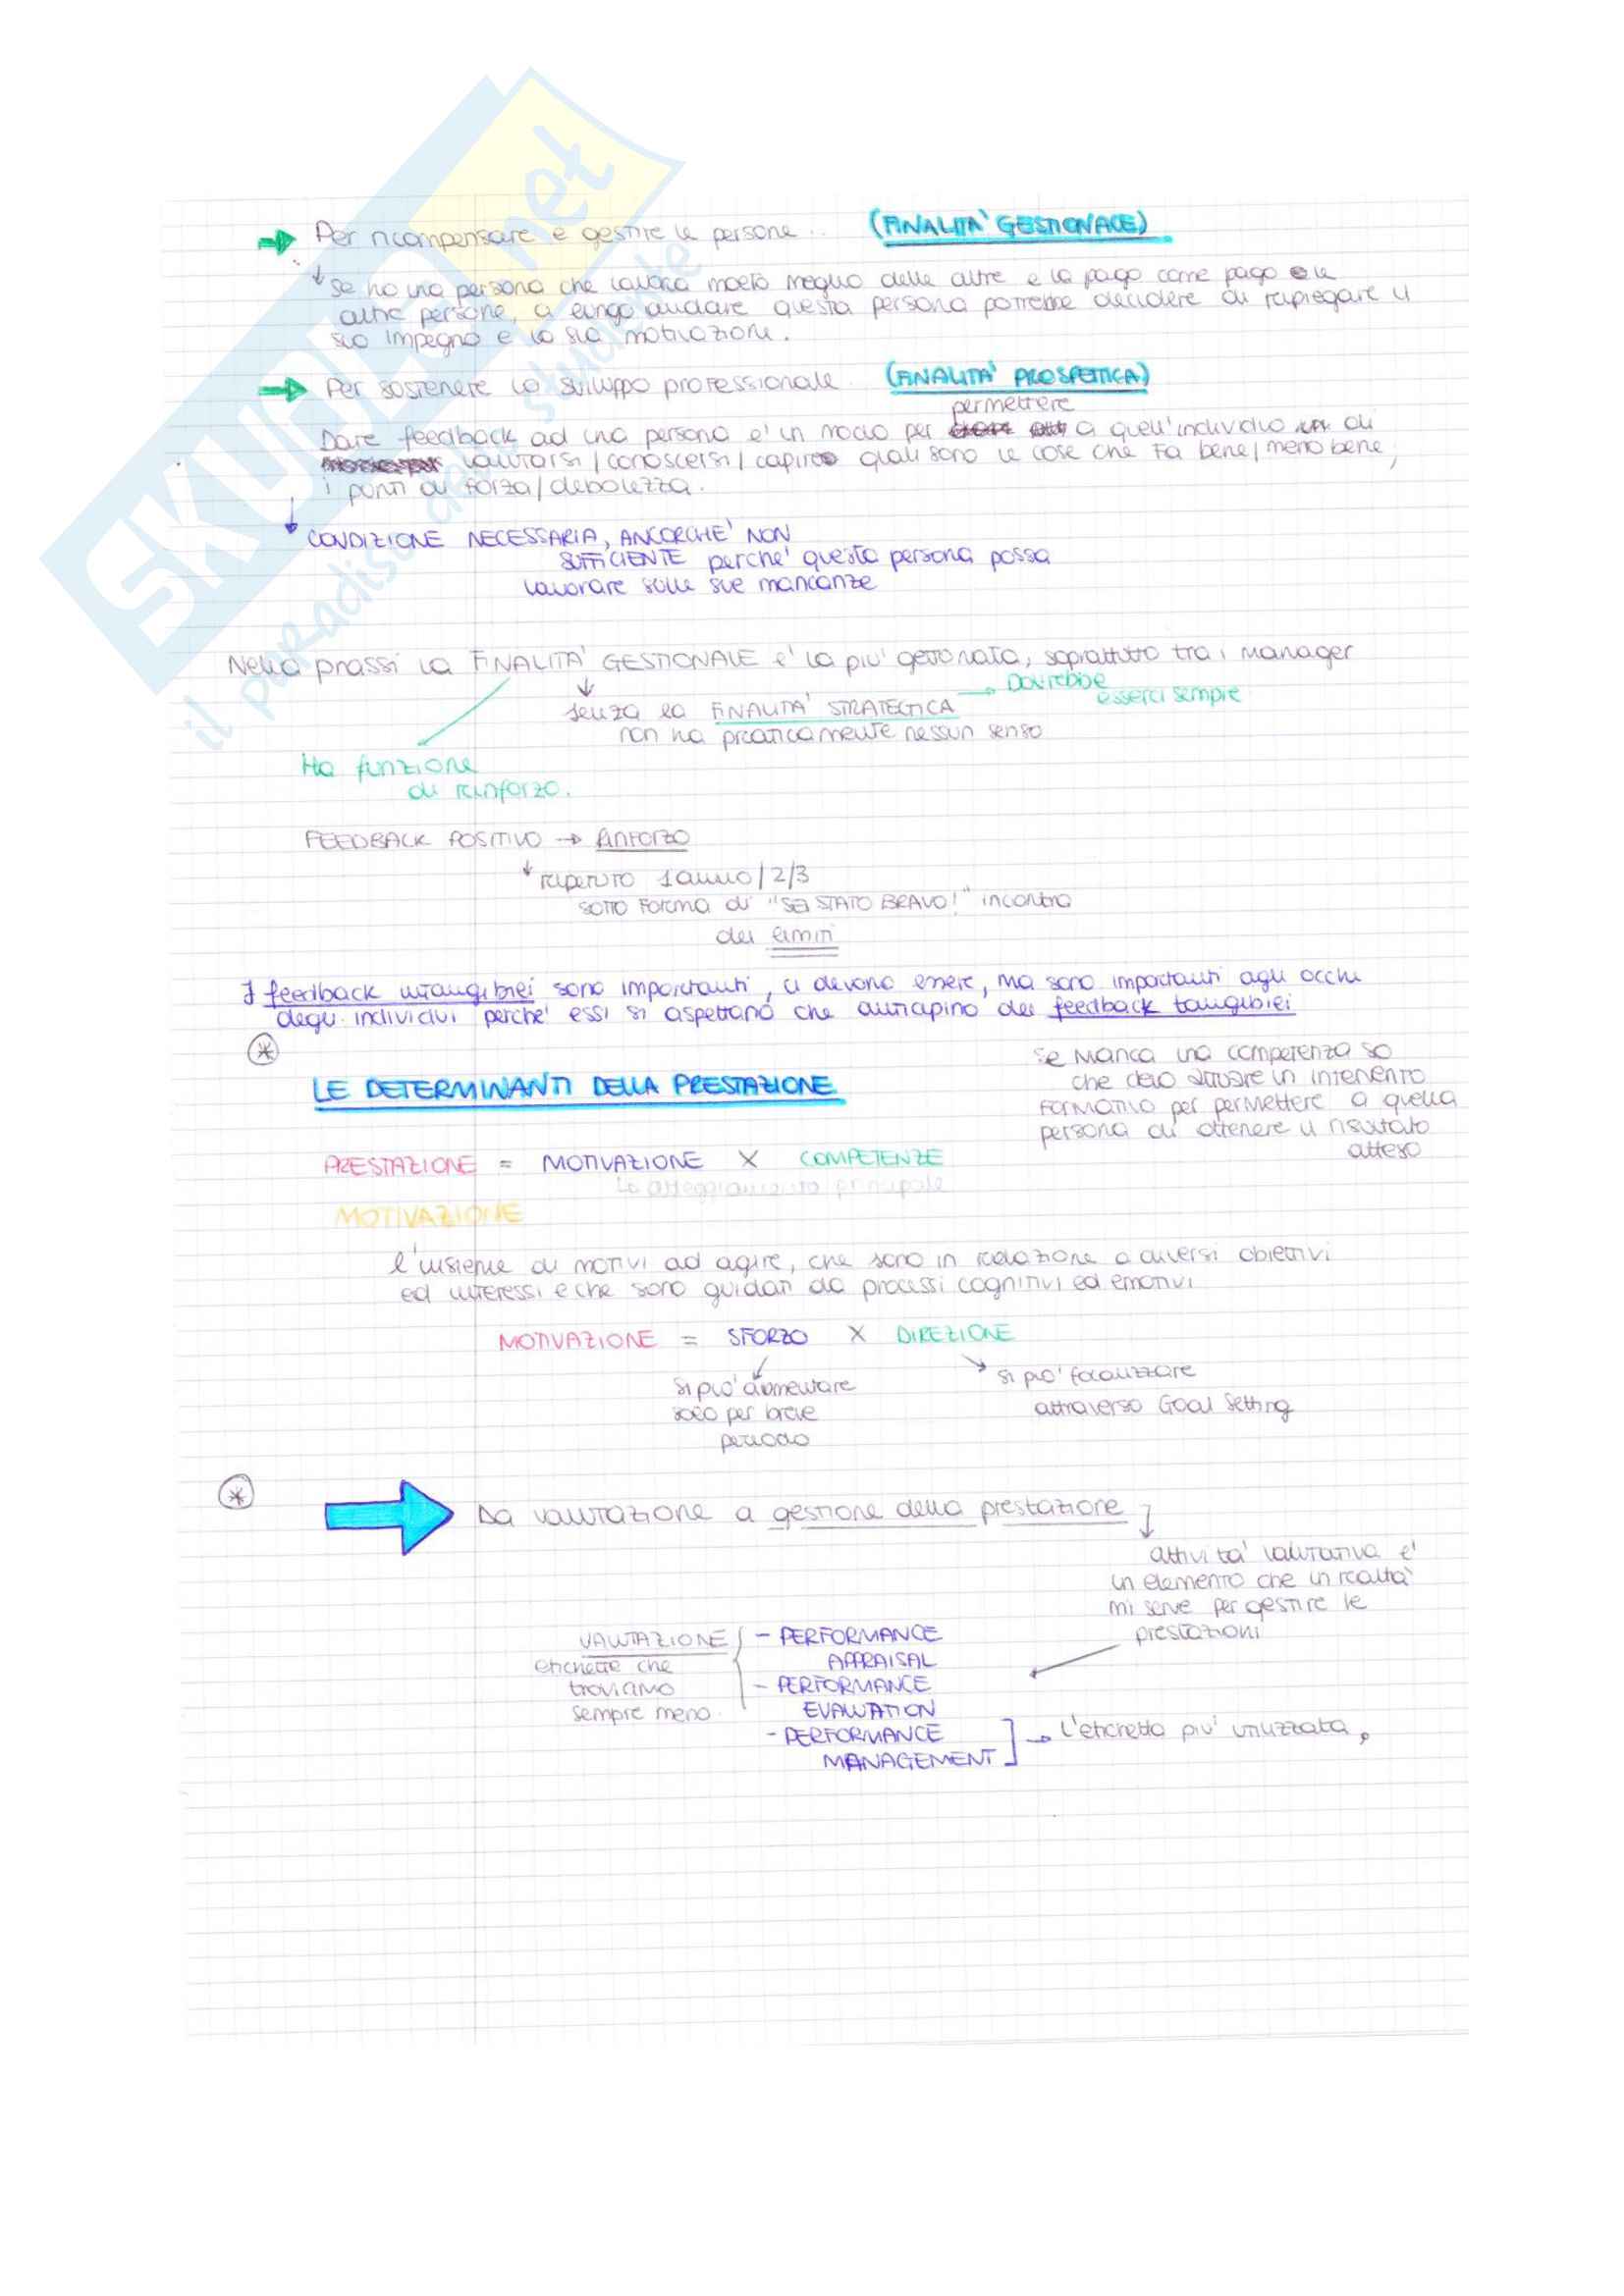 SKUOLA.net
il paradiso dello studente
Per ricompensare e gestire le persone .. (FINALITA' GESTIONALE)
↓ Se ho una persona che lavora molto meglio delle altre e la pago come pago le
altre persone, a lungo andare questa persona potrebbe decidere di ripiegare il
suo impegno e la sua motivazione.
Per sostenere lo sviluppo professionale. (FINALITA' PROSPETTICA)
permettere
Dare feedback ad una persona e' un modo per a quell'individuo di
valutarsi/conoscersi/capire quali sono le cose che fa bene/meno bene,
i punti di forza/debolezza.
↓ CONDIZIONE NECESSARIA, ANCORCHE' NON
SUFFICIENTE perche' questa persona possa
lavorare sulle sue mancanze
Nella prassi la FINALITA' GESTIONALE e' la piu' gettonata, soprattutto tra i manager
↓ senza la FINALITA' STRATEGICA → Dovrebbe
esserci sempre
non ha praticamente nessun senso
Ha funzione
di rinforzo.
FEEDBACK POSITIVO → Rinforzo
↓ ripetuto 1 anno/2/3
sotto forma di "SEI STATO BRAVO!" incontra
dei limiti
I feedback intangibili sono importanti, ci devono essere, ma sono importanti agli occhi
degli individui perche' essi si aspettano che anticipino dei feedback tangibili
*
LE DETERMINANTI DELLA PRESTAZIONE
Se manca una competenza so
che devo attuare un intervento
formativo per permettere a quella
persona di ottenere il risultato
atteso
PRESTAZIONE = MOTIVAZIONE X COMPETENZE
Lo atteggiamento principale
MOTIVAZIONE
l'insieme di motivi ad agire, che sono in relazione a diversi obiettivi
ed interessi e che sono guidati da processi cognitivi ed emotivi
MOTIVAZIONE = SFORZO X DIREZIONE
si puo' aumentare
solo per breve
periodo
si puo' focalizzare
attraverso Goal Setting
*
Da valutazione a gestione della prestazione
attivita' valutativa e'
un elemento che in realta'
mi serve per gestire le
prestazioni
VALUTAZIONE
etichette che
troviamo
sempre meno.
- PERFORMANCE
APPRAISAL
- PERFORMANCE
EVALUATION
- PERFORMANCE
MANAGEMENT
→ L'etichetta piu' utilizzata.